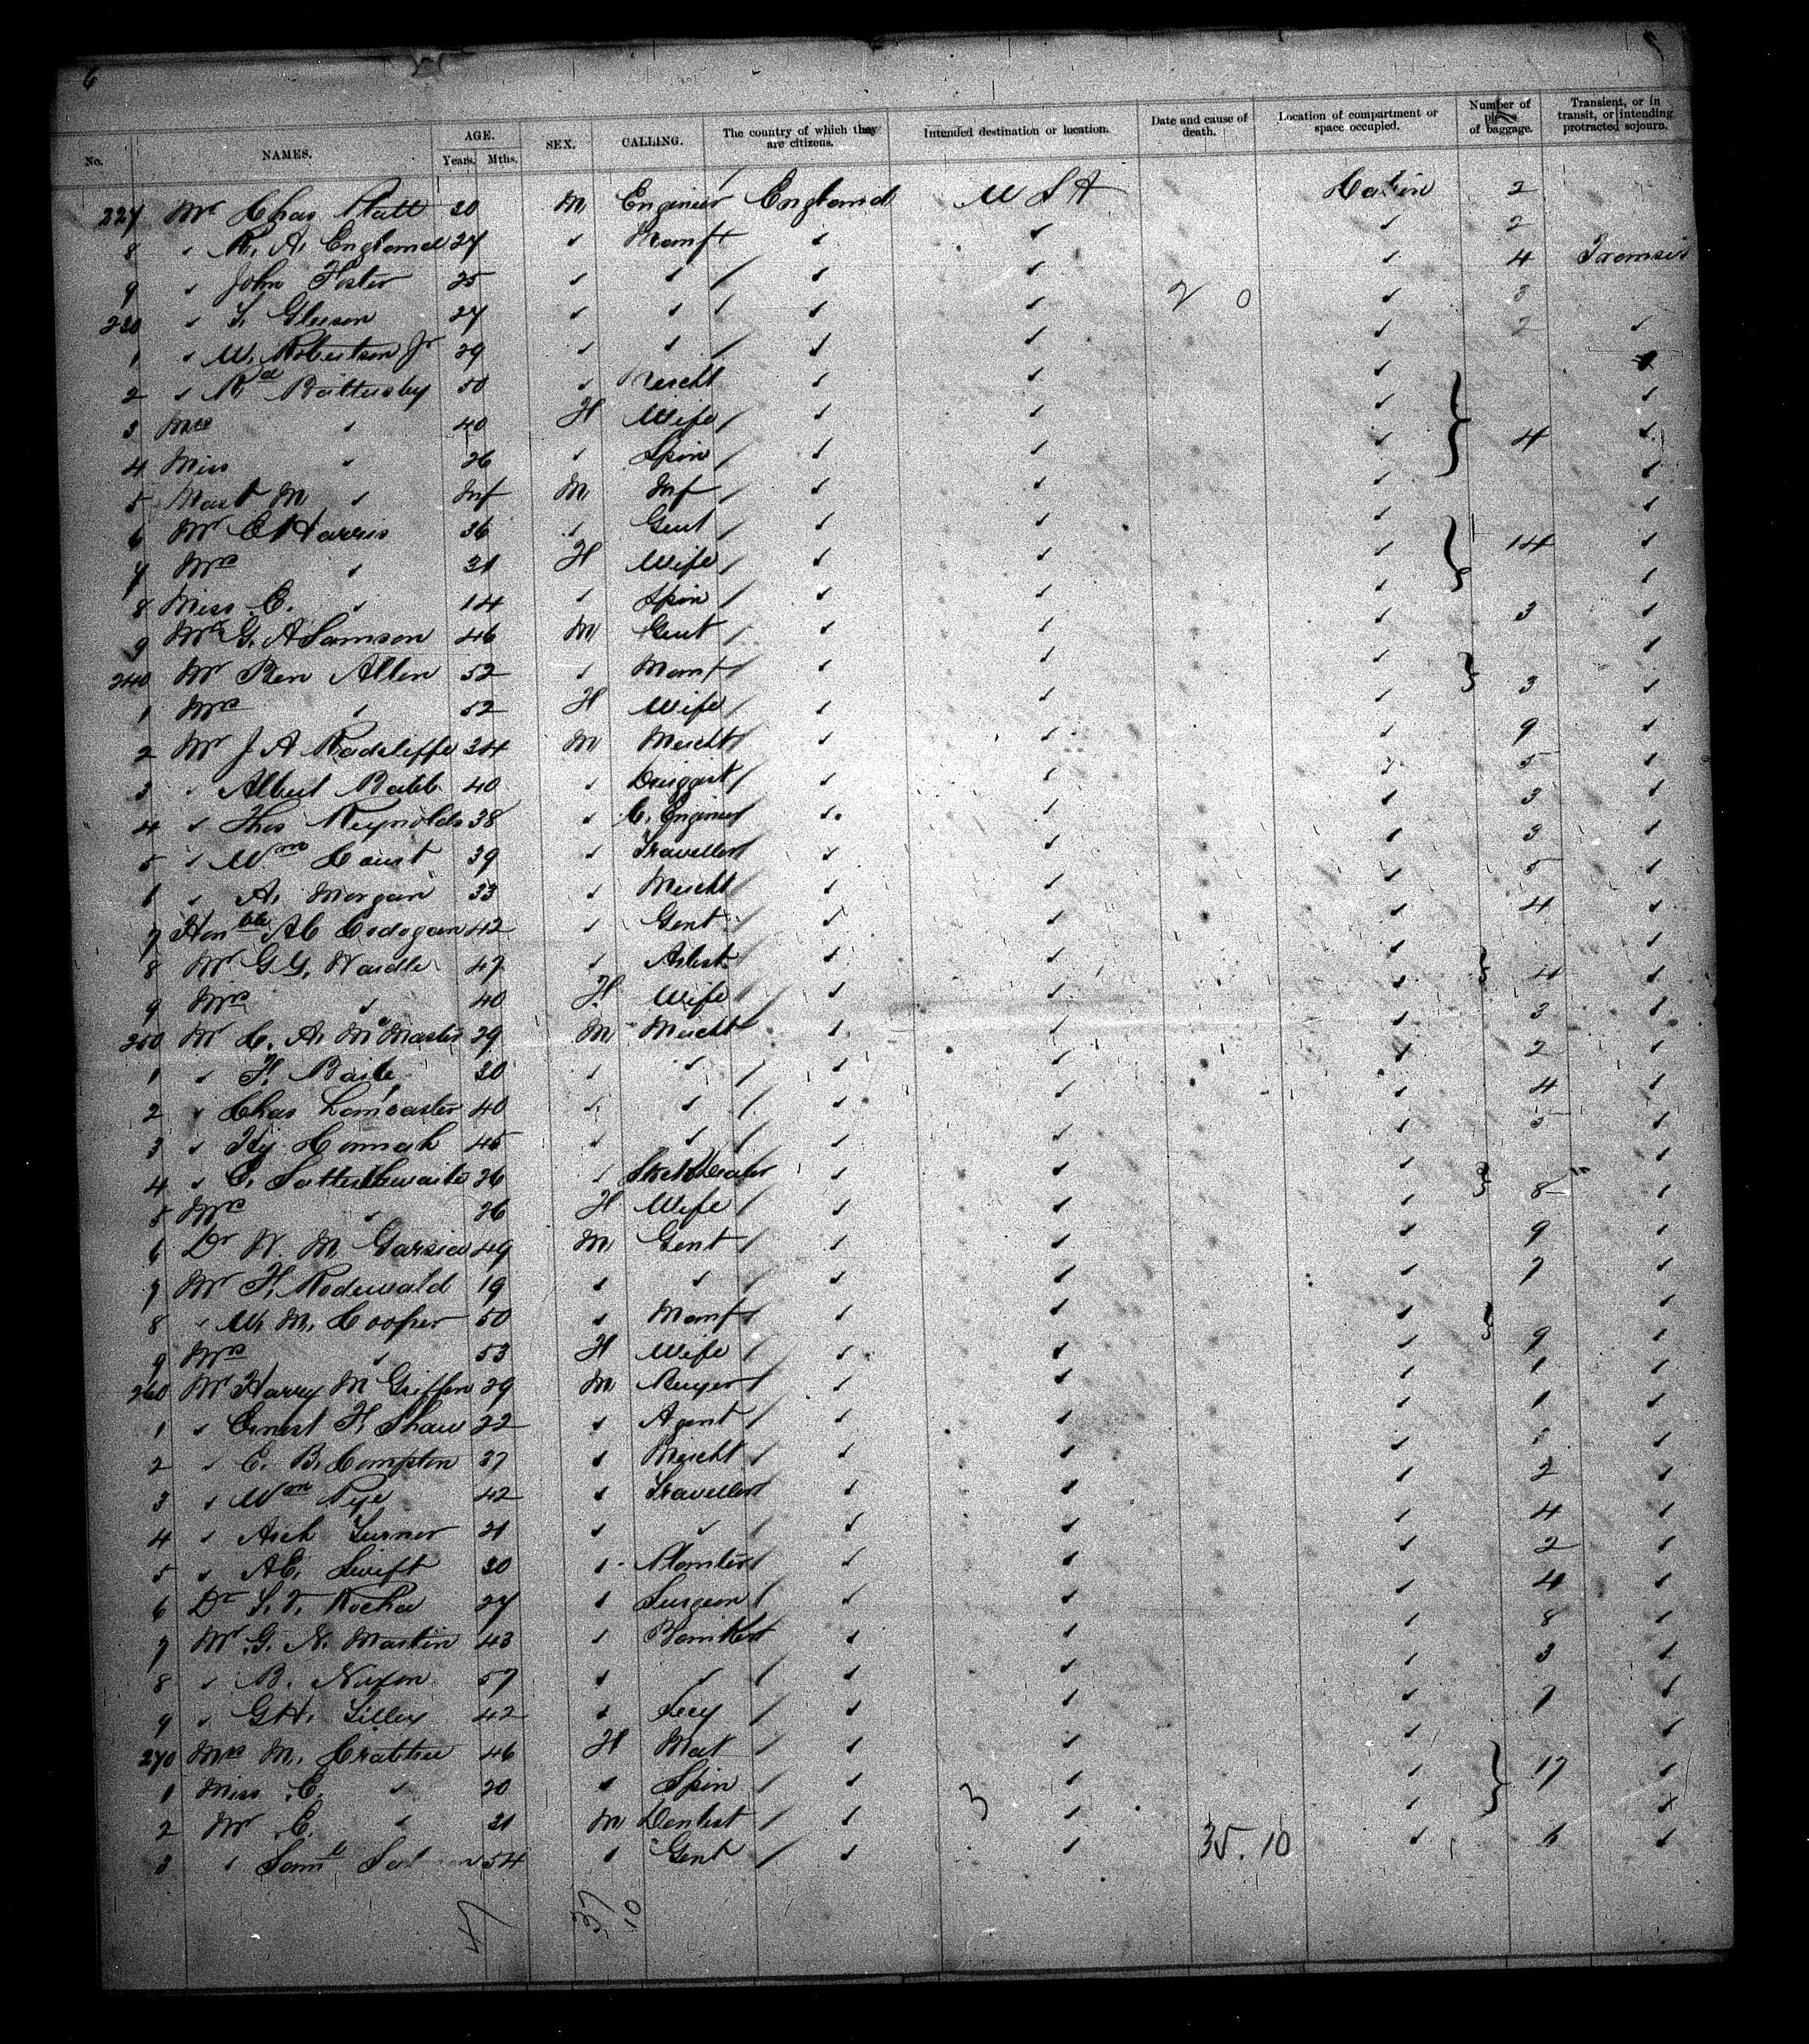 6
No. NAMES. AGE. Years. Mths. SEX. CALLING. The country of which they are citizens. Intended destination or location. Date and cause of death. Location of compartment or space occupied. Number of pieces of baggage. Transient, or in transit, or intending protracted sojourn.
227 Mr Chas Platt 20 M Engineer England U S A Cabin 2
8 " R. A. England 27 " Manft " " " 2
9 " John Foster 25 " " " " " 4 Transit
230 " Gleeson 27 " " " " 2 0 " 3
1 " W. Robertson Jr 29 " " " " " 2 "
2 " Rd Battersby 50 " Mercht " " "
3 Mrs " 40 F Wife " " " "
4 Miss " 26 " Spin " " " 4 "
5 Mast M " Inf M Inf " " "
6 Mr E Harris 36 " Gent " " " "
7 Mrs " 31 F Wife " " " 14 "
8 Miss E. " 14 " Spin " " " "
9 Mr G. A Samson 46 M Gent " " " 3 "
240 Mr Ben Allen 52 " Manft " " " "
1 Mrs " 52 F Wife " " " 3 "
2 Mr J A Radcliffe 34 M Mercht " " " 9 "
3 " Albert Babb 40 " Druggist " " " 5 "
4 " Thos Reynolds 38 " C. Engineer " " " 3 "
5 " Wm Court 39 " Traveller " " " 3 "
6 " A. Morgan 33 " Mercht " " " 5 "
7 Honble A C Cadogan 42 " Gent " " " 4 "
8 Mr G. G. Wardle 47 " Artist " " " "
9 Mrs " 40 F Wife " " " 4 "
250 Mr C. A. McMaster 29 M Mercht " " " 3 "
1 " F. 30 " " " " " 2 "
2 " Chas Lancaster 40 " " " " " 4 "
3 " Hy. Hannah 45 " " " " " 5 "
4 " C. Satterthwaite 36 " " " " "
5 Mrs " 26 F Wife " " " 8 "
6 Dr W. M. Garsia 49 M Gent " " " 9 "
7 Mr F. Rodewald 19 " " " " " 7 "
8 " W. M. Cooper 50 " Manft " " " "
9 Mrs " 53 F Wife " " " 9 "
260 Mr Harry M Griffin 29 M Buyer " " " 1 "
1 " Ernest H. Shaw 22 " Agent " " " 1 "
2 " E. B. Compton 37 " Mercht " " " "
3 " Wm Pye 42 " Traveller " " " 2 "
4 " Arch Turner 21 " " " " " 4 "
5 " A E. Swift 30 " Planter " " " 2 "
6 Dr Rocha 27 " Surgeon " " " 4 "
7 Mr G. N. Martin 43 " Banker " " " 8 "
8 " B. Nixon 57 " " " " " 3 "
9 " G H. Lilley 42 " Secy " " " 7 "
270 Mrs M. Crabtree 46 F Mat " " " "
1 Miss E. " 20 " Spin " " " 17 "
2 Mr E. " 21 M Dentist " 3 " " "
3 " Saml 54 " Gent " " 35. 10 " 6 "
47 37 10